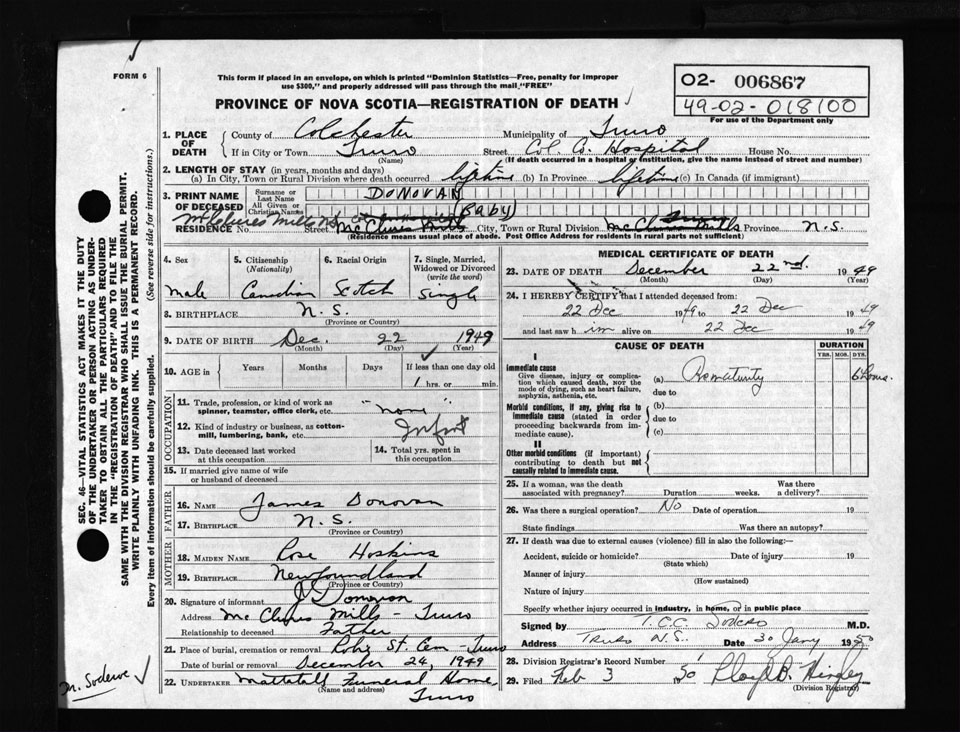 FORM 6
This form if placed in an envelope, on which is printed "Dominion Statistics—Free, penalty for improper
use $300," and properly addressed will pass through the mail "FREE"
02- 006867
49-02-018100
For use of the Department only
PROVINCE OF NOVA SCOTIA—REGISTRATION OF DEATH
1. PLACE OF DEATH
County of Colchester Municipality of Truro
If in City or Town Truro Street Col. A. Hospital House No.
(Name) (If death occurred in a hospital or institution, give the name instead of street and number)
2. LENGTH OF STAY (in years, months and days)
(a) In City, Town or Rural Division where death occurred lifetime (b) In Province lifetime (c) In Canada (if immigrant)
3. PRINT NAME OF DECEASED
Surname or Last Name DONOVAN
All Given or Christian Names (Baby)
RESIDENCE No. McClures Mills Street McClures Mills City, Town or Rural Division McClures Mills Truro Province N.S.
(Residence means usual place of abode. Post Office Address for residents in rural parts not sufficient)
4. Sex
5. Citizenship (Nationality)
6. Racial Origin
7. Single, Married, Widowed or Divorced (write the word)
male Canadian Scotch Single
8. BIRTHPLACE N.S.
(Province or Country)
9. DATE OF BIRTH Dec. 22 1949
(Month) (Day) (Year)
10. AGE in Years Months Days If less than one day old
1 hrs. or min.
OCCUPATION
11. Trade, profession, or kind of work as spinner, teamster, office clerk, etc. "none"
12. Kind of industry or business, as cotton-mill, lumbering, bank, etc. Infant
13. Date deceased last worked at this occupation
14. Total yrs. spent in this occupation
15. If married give name of wife or husband of deceased
FATHER
16. NAME James Donovan
17. BIRTHPLACE N.S.
(Province or Country)
MOTHER
18. MAIDEN NAME Rose Hoskins
19. BIRTHPLACE Newfoundland
(Province or Country)
20. Signature of informant J Donovan
Address McClures Mills - Truro
Relationship to deceased Father
21. Place of burial, cremation or removal Robie St. Cem - Truro
Date of burial or removal December 24, 1949
22. UNDERTAKER Mattatall Funeral Home,
(Name and address) Truro
MEDICAL CERTIFICATE OF DEATH
23. DATE OF DEATH December 22nd. 1949
(Month) (Day) (Year)
24. I HEREBY CERTIFY that I attended deceased from:
22 Dec 1949 to 22 Dec 1949
and last saw him alive on 22 Dec 1949
CAUSE OF DEATH
DURATION
YRS. MOS. DYS.
I
Immediate cause
Give disease, injury or complication which caused death, NOT the mode of dying, such as heart failure, asphyxia, asthenia, etc.
(a) Prematurity 6 hours.
due to
Morbid conditions, if any, giving rise to immediate cause (stated in order proceeding backwards from immediate cause).
(b)
due to
(c)
II
Other morbid conditions (if important) contributing to death but not causally related to immediate cause.
25. If a woman, was the death associated with pregnancy? Duration weeks. Was there a delivery?
26. Was there a surgical operation? No Date of operation 19
State findings Was there an autopsy?
27. If death was due to external causes (violence) fill in also the following:—
Accident, suicide or homicide? Date of injury 19
(State which)
Manner of injury
(How sustained)
Nature of injury
Specify whether injury occurred in industry, in home, or in public place
Signed by T.C.C. Sodero M.D.
Address Truro N.S. Date 30 Jany 1950
28. Division Registrar's Record Number
29. Filed Feb 3 1950 Lloyd B. Hingley
(Division Registrar)
SEC. 46—VITAL STATISTICS ACT MAKES IT THE DUTY
OF THE UNDERTAKER OR PERSON ACTING AS UNDER-
TAKER TO OBTAIN ALL THE PARTICULARS REQUIRED
IN THE "REGISTRATION OF DEATH" AND TO FILE THE
SAME WITH THE DIVISION REGISTRAR WHO SHALL ISSUE THE BURIAL PERMIT.
WRITE PLAINLY WITH UNFADING INK. THIS IS A PERMANENT RECORD.
Every item of information should be carefully supplied. (See reverse side for instructions.)